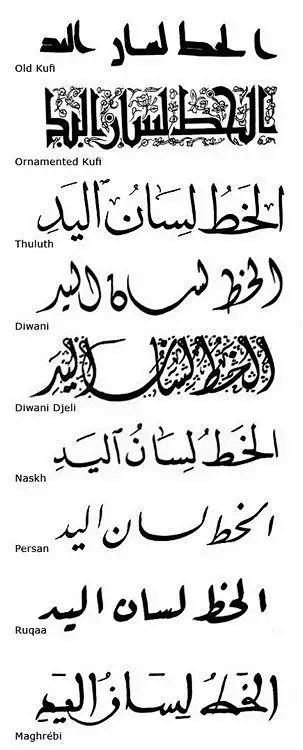 الخط لسان اليد
Old Kufi
الخط لسان اليد
Ornamented Kufi
الخَطُّ لِسَانُ اليَدِ
Thuluth
الخط لسان اليد
Diwani
الخط لسان اليد
Diwani Djeli
الخَطُ لِسَانُ اليَدِ
Naskh
الخط لسان اليد
Persan
الخط لسان اليد
Ruqaa
الخَط لِسَانُ اليَدِ
Maghrébi